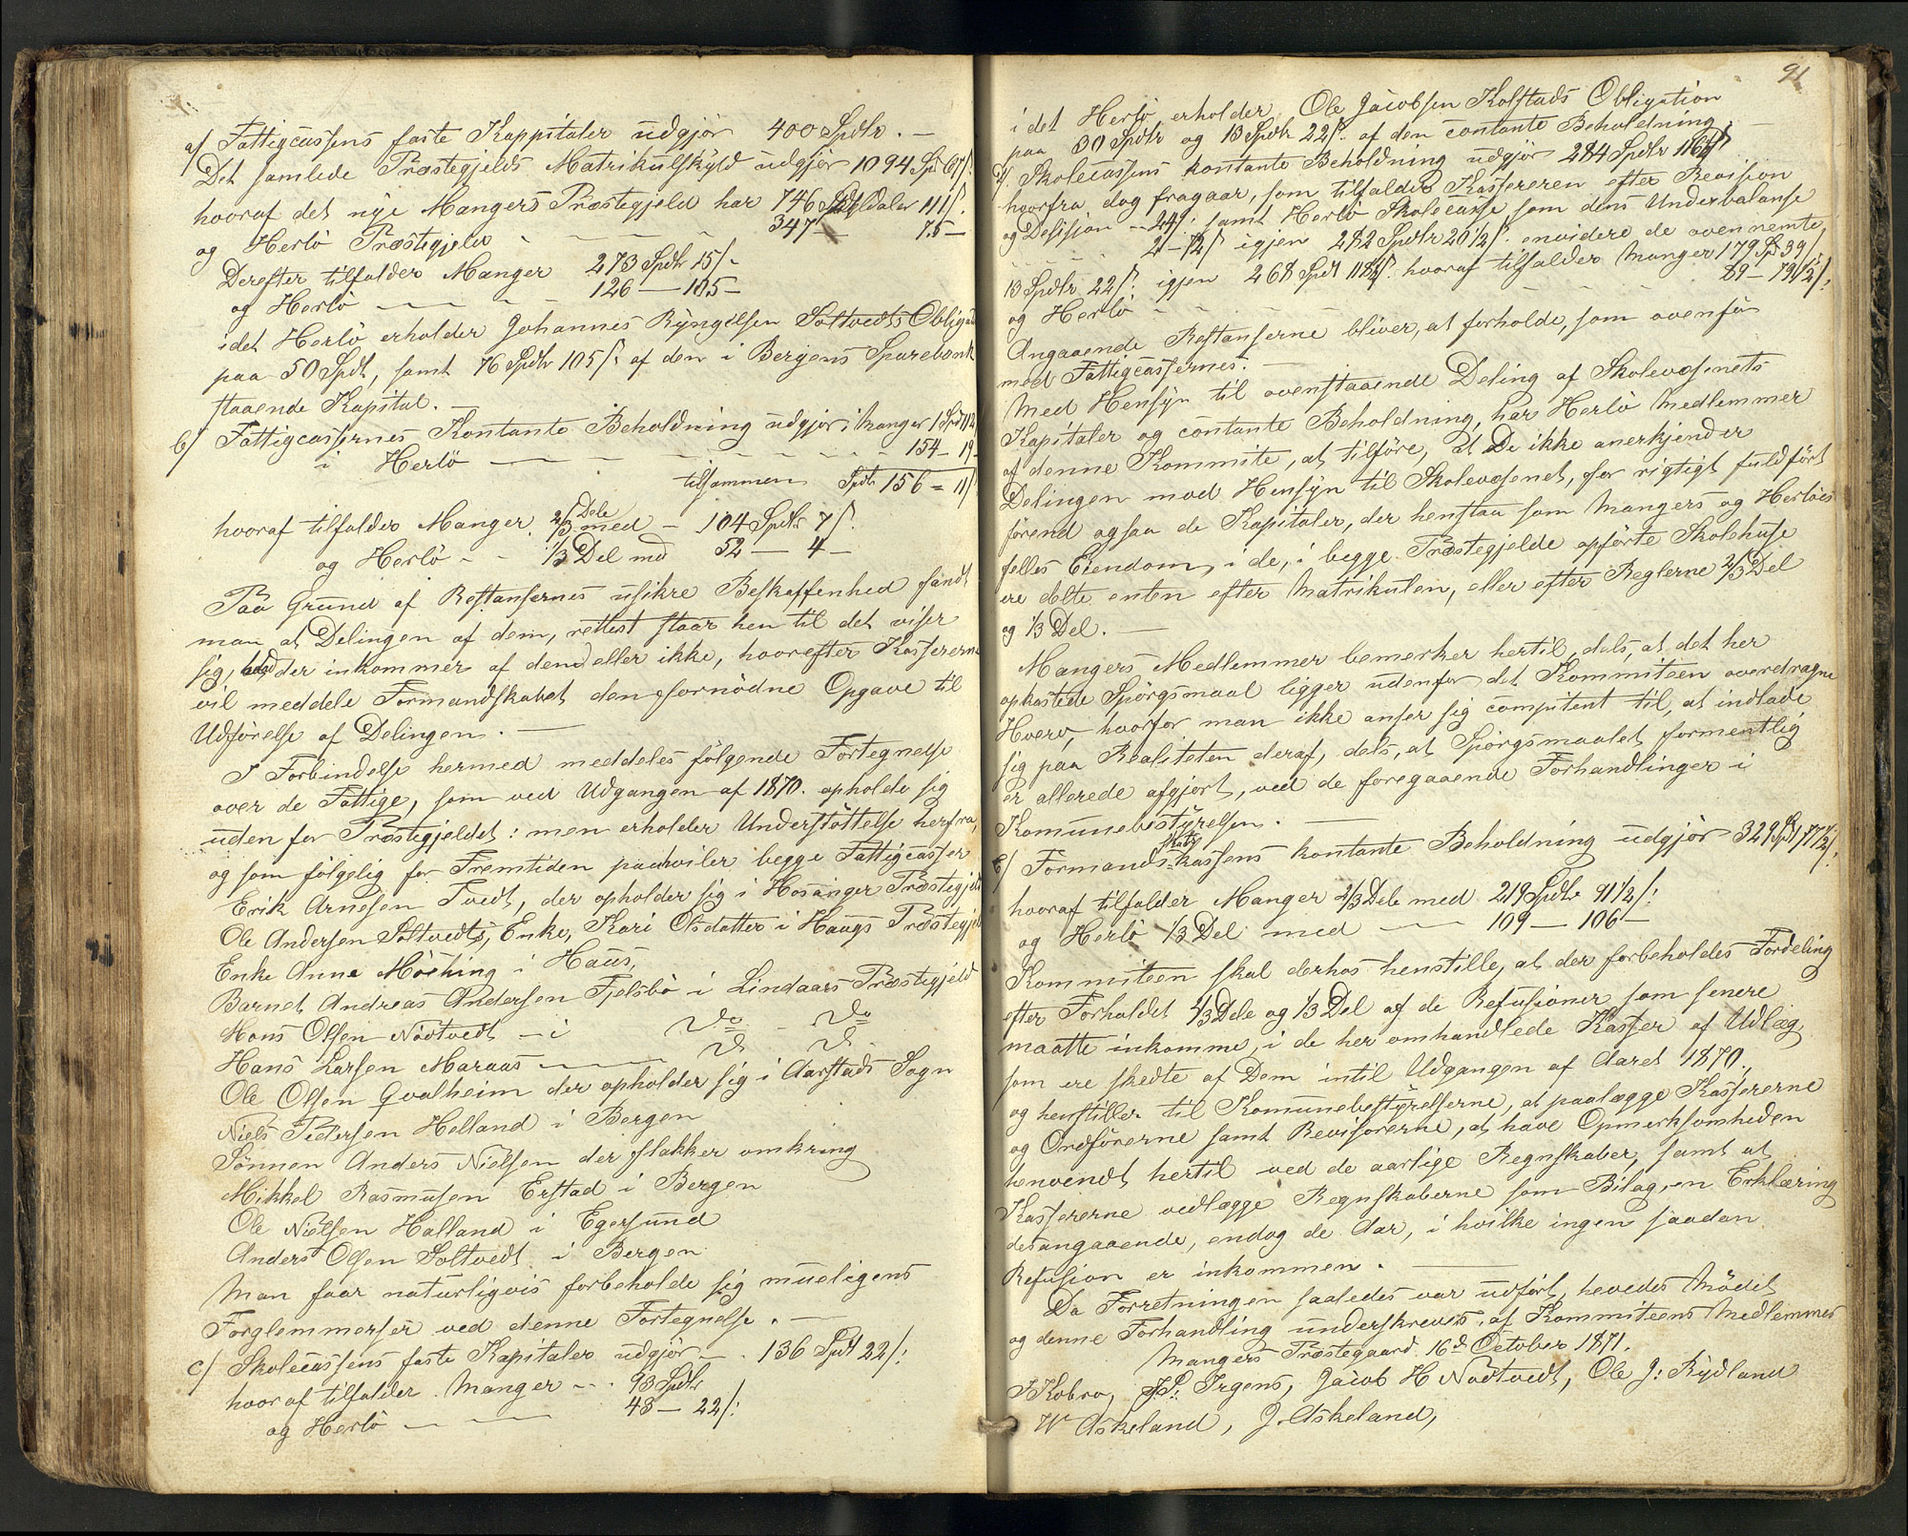 a/ Fattigcassens faste Kappitaler udgjør 400 Spdlr. —
Det samlede Præstegjelds Matrikulskyld udgjør 1094 Spd 67/
hvoraf det nye Mangers Præstegjeld har 746 Spesidaler 111/.
og Herlö Præstegjeld - - - - 347 — 75 —
Derefter tilfalder Manger 273 Spdlr 15/-
og Herlö — — - - 126 — 105 —
idet Herlö erholder Johannes Ryngelsen Soltvedts Obligat
paa 50 Spdl, samt 76 Spdlr 105/: af den i Bergens Sparebank
staaende Kapital. —
b/ Fattigcassernes Kontante Beholdning udgjör i Manger 1 Spd 112
i Herlö — - - - - - 154 - 19 -
tilsammen Spdlr 156 = 11/
hvoraf tilfalder Manger 2/3 Dele med — 104 Spdlr 7/:
og Herlö - - 1/3 Del med 52 — 4 —
Paa Grund af Restansernes usikre Beskaffenhed fandt
man at Delingen af dem, rettest staar hen til det viser
sig, hvad der inkommer af dem eller ikke, hvorefter Kassererne
vil meddele Formandskabet den fornödne Opgave til
Udförelse af Delingen. —
I Forbindelse hermed meddeles fölgende Fortegnelse
over de Fattige, som ved Udgangen af 1870. opholde sig
uden for Præstegjeldet: men erholder Understöttelse herfra,
og som fölgelig for Fremtiden paahviler begge Fattigcasser
Erik Arnesen Tvedt, der opholder sig i Hosanger Præstegjeld
Ole Andersen Soltvedts, Enke, Kari Olsdatter i Haugs Præstegjeld
Enke Anne Möching i Haus,
Barnet Andreas Andersen Fjelsbö i Lindaas Præstegjeld
Mons Olsen Nödtvedt — i Do - Do
Hans Larsen Maraas — — D D.
Ole Olsen Qvalheim der opholder sig i Aarstads Sogn
Niels Pedersen Helland i Bergen
Sönnen Anders Nielsen der flakker omkring
Mikkel Rasmusen Erstad i Bergen
Ole Nielsen Halland i Egersund
Anders Olsen Soltvedt i Bergen
Man faar naturligvis forbeholde sig mueligens
Forglemmerser ved denne Fortegnelse. —
c/ Skolecassens faste Kapitaler udgjör — . 136 Spdl 22/:
hvoraf tilfalder Manger - - . 93 Spdlr
og Herlö — — — 43 — 22/:
91
idet Herlö erholder Ole Jacobsen Kolstads Obligation
paa 30 Spdlr og 13 Spdlr 22/: af den contante Beholdning. —
d/. Skolecassens kontante Beholdning udgjör 284 Spdlr
hvorfra dog fragaar, som tilfalder Kassereren efter Revision
og Desisjon — 24/: samt Herlö Skolecasse, som dens Underbalanse
2 — 12/ igjen 282 Spdlr 20 1/2/: envidere de ovennemte
13 Spdlr 22/: igjen 268 Spdl hvoraf tilfalder Manger 179 Sp 39/
og Herlö - - - - - 89 —
Angaaende Restanserne bliver, at forholde, som ovenför
med Fattigcassernes. —
Med Hensyn til ovenstaaende Deling af Skolevæsenets
Kapitaler og contante Beholdning, har Herlö Medlemmer
af denne Kommite, at tilföre, at De ikke anerkjender
Delingen med Hensyn til Skolevæsenet, for rigtigt fuldfört
förend ogsaa de Kapitaler, der henstaa som Mangers og Herlöes
felles Eiendom, i de, i begge Præstegjelde opförte Skolehuse
ere delte enten efter Matrikulen, eller efter Reglerne 2/3 Del
og 1/3 Del. —
Mangers Medlemmer bemerker hertil, dels, at det her
opkastede Spörgsmaal ligger udenfor det Kommiteen overdragne
Hverv, hvorfor man ikke anser sig competent til, at indlade
sig paa Realiteten deraf, dels, at Spörgsmaalet formentlig
er allerede afgjort, ved de foregaaende Forhandlinger i
Komunebestyrelsen. —
e/ Formandskatskassens kontante Beholdning udgjör 329 Spd 77 1/2/:
hvoraf tilfalder Manger 2/3 Dele med 219 Spdlr 91 1/2/:
og Herlö 1/3 Del med — — 109 — 106 —
Kommiteen skal derhos henstille, at der forbeholdes Fordeling
efter Forholdet 2/3 Dele og 1/3 Del af de Refusioner som senere
maatte inkomme, i de her omhandlede Kasser af Udlæg,
som ere skedte af Dem intil Udgangen af Aaret 1870,
og henstiller til Komunebestyrelserne, at paalægge Kassererne
og Ordförerne samt Revisorerne, at have Opmerksomheden
henvendt hertil ved de aarlige Regnskaber, samt at
Kassererne vedlægge Regnskaberne som Bilag, en Erklæring
desangaaende, endog de Aar, i hvilke ingen saadan
Refusion er inkommen. —
Da Forretningen saaledes var udfört, hevedes Mödet
og denne Forhandling underskreves, af Kommiteens Medlemmer
Mangers Præstegaard 16d October 1871.
J Kobro, J S: Irgens, Jacob H Nödtvedt, Ole J: Rydland
W Askeland, J. Askeland,